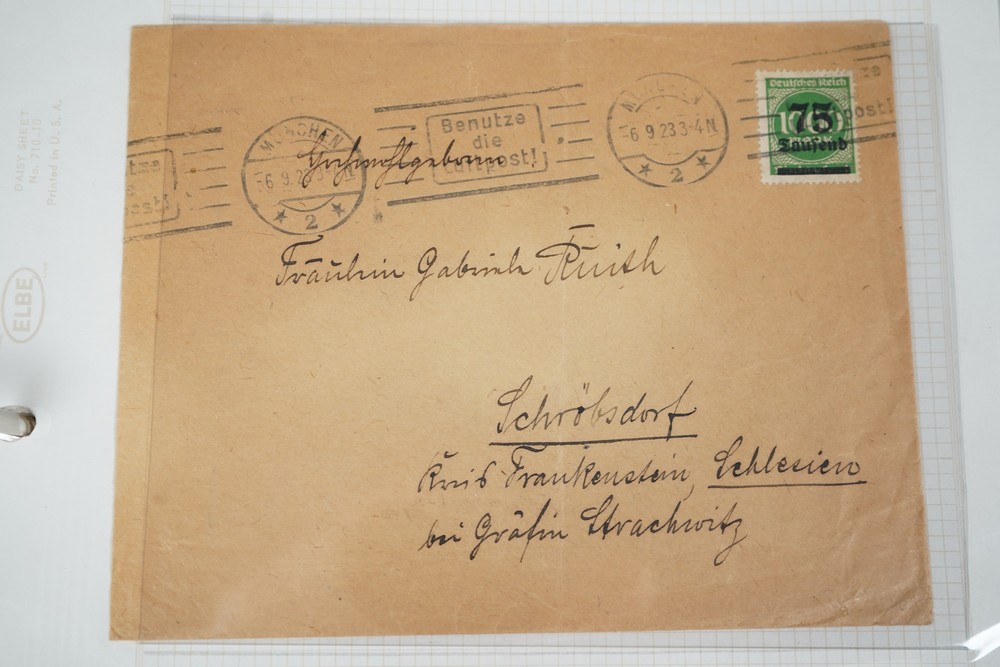 MÜNCHEN
-6.9.23 3-4 N
2
Benutze
die
Luftpost!
MÜNCHEN
-6.9.23 3-4 N
2
Deutsches Reich
75
Tausend
Hochwohlgeboren
Fräulein Gabriele Ruith
Schröbsdorf
Kreis Frankenstein, Schlesien
bei Gräfin Strachwitz
DAISY SHEET
No. 710-10
Printed in U. S. A.
ELBE